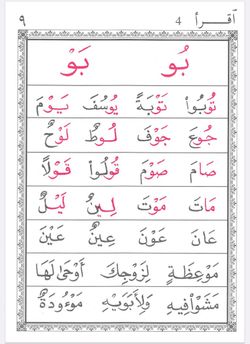 ٱقْرَأْ 4 ٩
بُو بَوْ
تُوبُواْ تَوْبَةً يُوسُفَ يَوْمَ
جُوعَ جَوْفَ لُوطٌ لَوْحٌ
صَامَ صَوْمَ قُولُواْ قَوْلاً
مَاتَ مَوْتَ لِينٌ لَيْلٌ
عَانَ عَوْنَ عِينٌ عَيْنَ
مَوْعِظَةٍ لِزَوْجِكَ أَوْحَىٰ لَهَا
مَشَوْاْ فِيهِ وَلِأَبَوَيْهِ مَوْءُودَةٌ